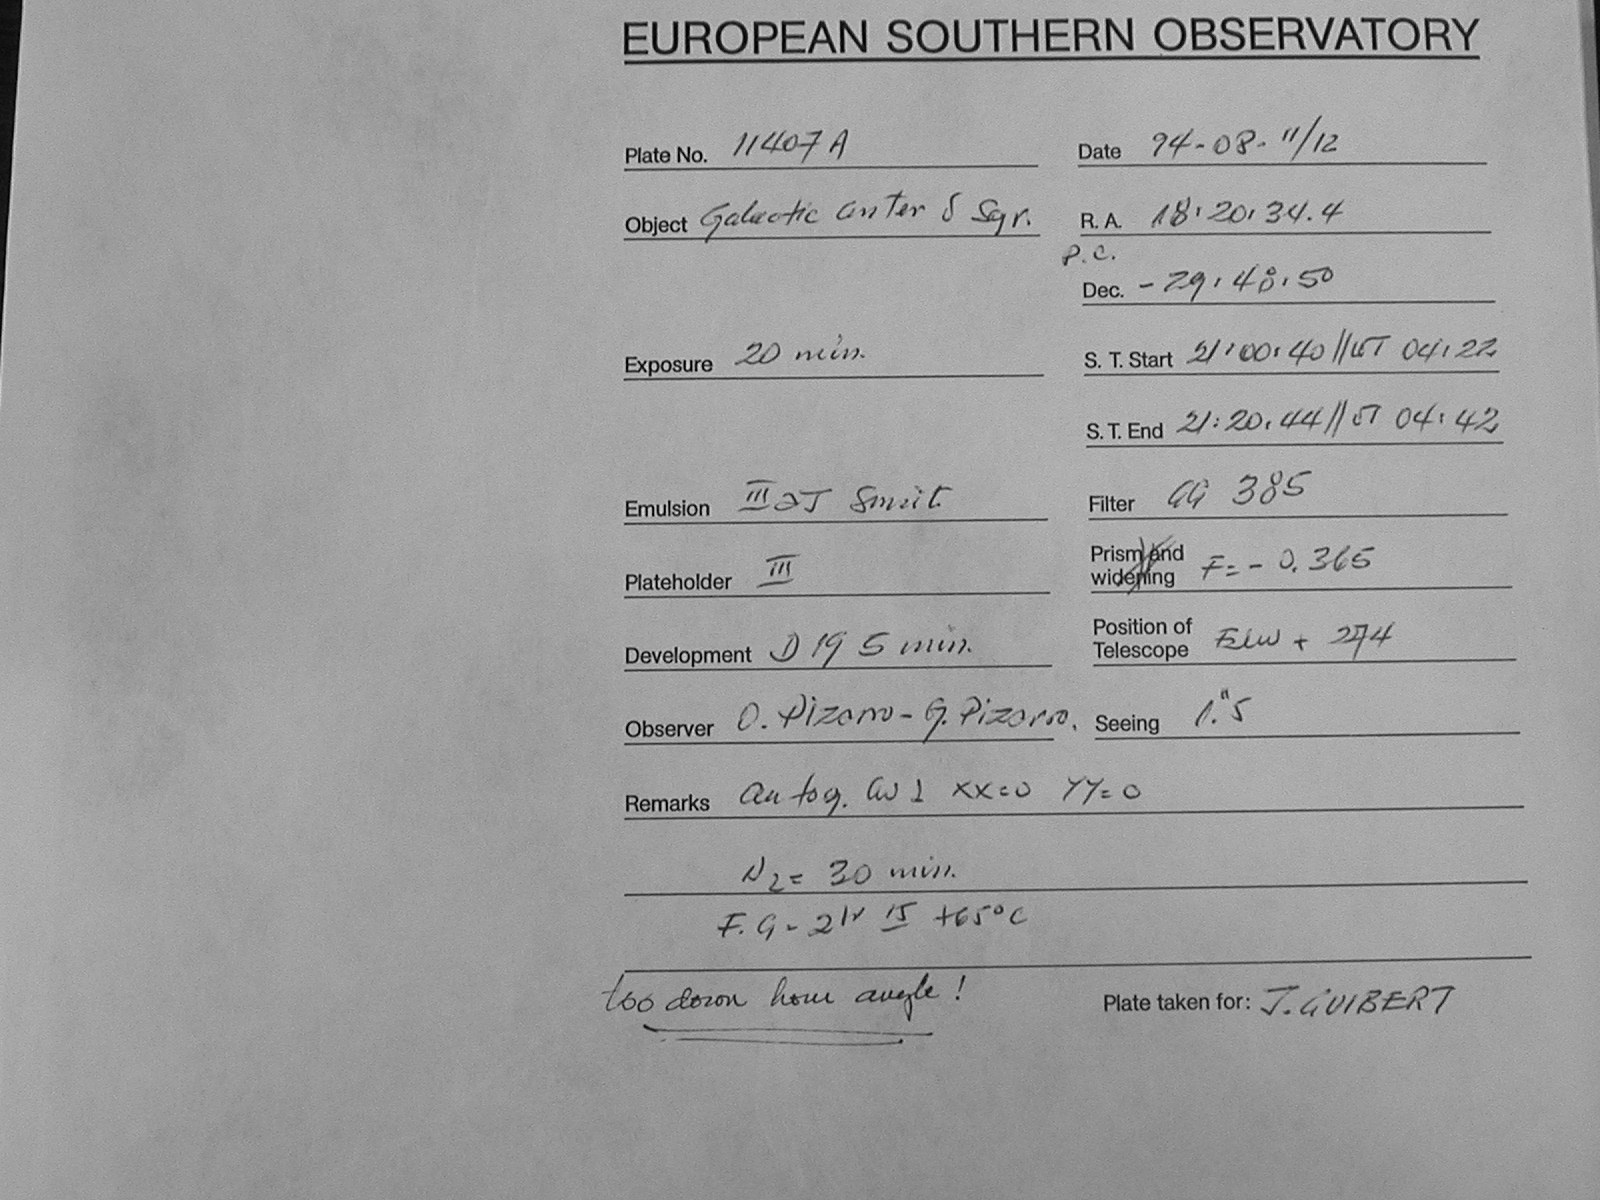 EUROPEAN SOUTHERN OBSERVATORY
Plate No. 11407A Date 94-08-11/12
Object Galactic Center δ Sgr. R.A. 18:20:34.4
P.C.
Dec. -29:48:50
Exposure 20 min. S.T. Start 21:00:40//UT 04:22
S.T. End 21:20:44//UT 04:42
Emulsion III aJ Filter GG 385
Plateholder III Prism and widening F=-0.365
Development D19 5 min. Position of Telescope + 274
Observer O. Pizarro - G. Pizarro. Seeing 1."5
Remarks autog. xx=0 YY=0
N2= 30 min.
F.G. +65°C
too down hour angle! Plate taken for: J. GUIBERT